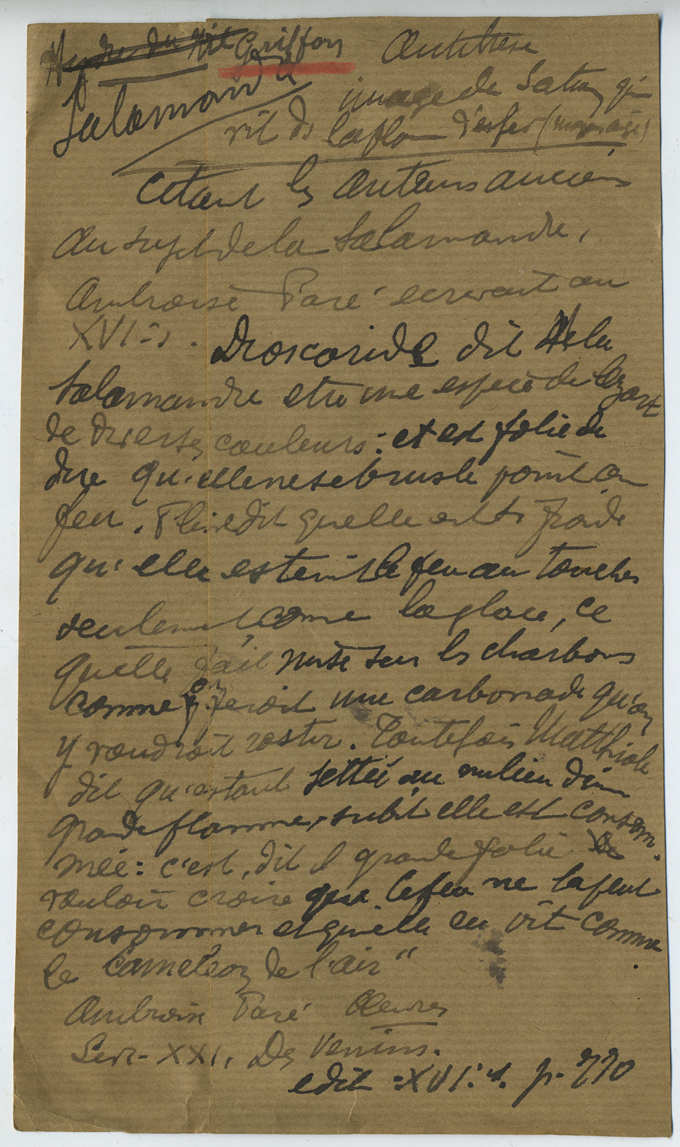 Griffon
Salamandre
Antithèse
image de Satan qui
vit ds la flamme d'enfer
Citant les auteurs anciens
au sujet de la Salamandre,
Ambroise Paré ecrivait au
XVI: s. Dioscoride dit de la
Salamandre etre une espece de lezart
de diverses couleurs: et est folie de
dire qu'elle ne se brusle point au
feu. Pline dit quelle est si froide
qu'elle esteint le feu au toucher
seulement come la glace, ce
quelle fait mise sur les charbons
comme feroit une carbonnade qu'on
y voudroit rostir. Toutefois Matthiole
dit qu'estant jettée au milieu d'un
grande flamme, subit elle est consom-
mée: c'est, dit il grande folie de
vouloir croire que le feu ne la peut
consommer et quelle en vit comme
le Cameleon de l'air"
Ambroise Paré Oeuvres
Livr. XXI. Des Venins.
edit. XVI: s. p. 770